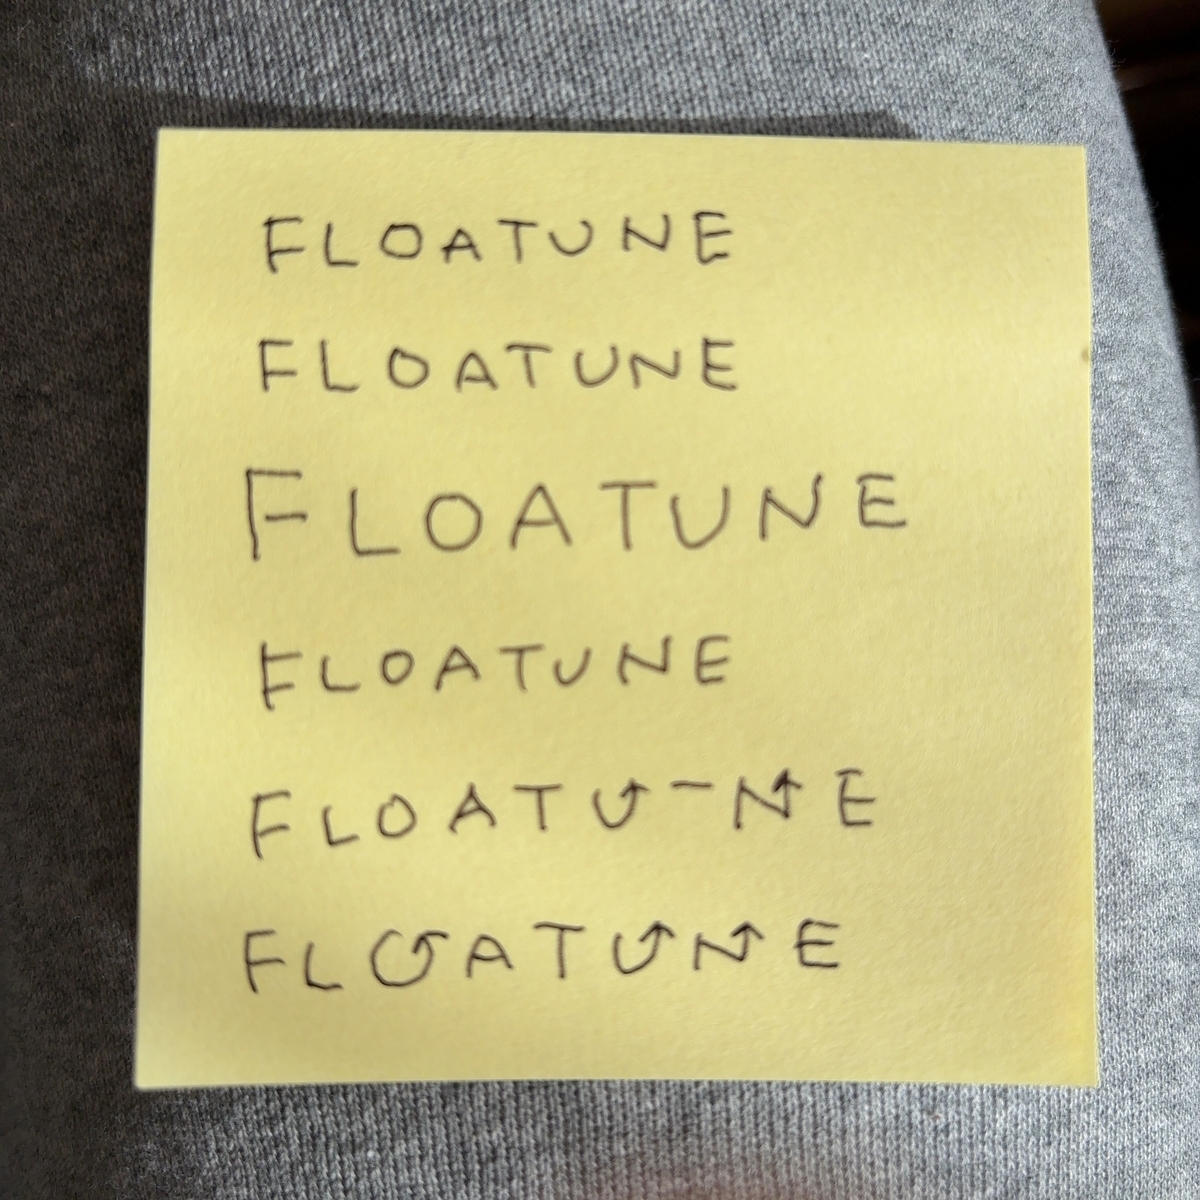 FLOATUNE
FLOATUNE
FLOATUNE
FLOATUNE
FLOATU-NE
FLOATUNE